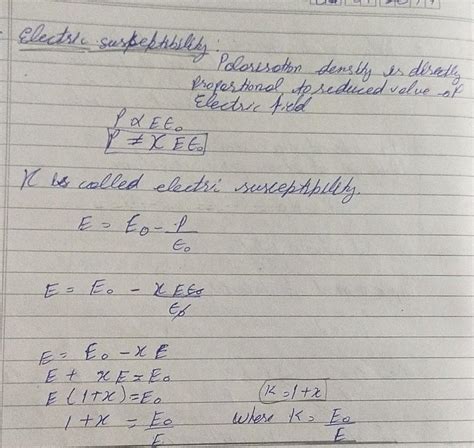 Electric susceptibility:
Polarisation density is directly
proportional to reduced value of
Electric field
P ∝ E ε₀
P = χ E ε₀
χ is called electri susceptibility.
E = E₀ - P/ε₀
E = E₀ - χ E ε₀/ε₀
E = E₀ - χ E
E + χ E = E₀
E (1+χ) = E₀ K = 1+χ
1+χ = E₀/E where K = E₀/E